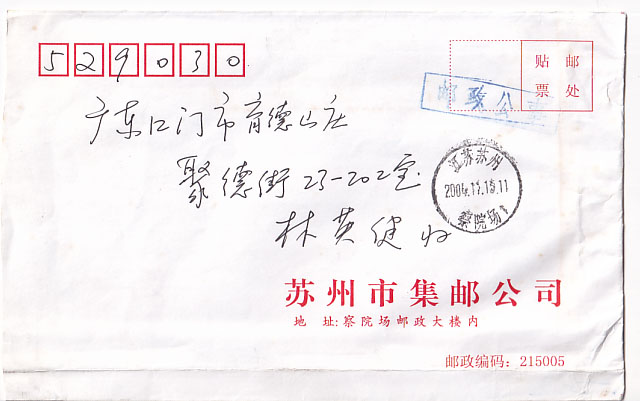 529030
贴 邮
票 处
邮政公事
广东江门市育德山庄
聚德街23-202室
林英健收
江苏苏州
2004.11.15.11
察院场
苏州市集邮公司
地 址:察院场邮政大楼内
邮政编码：215005